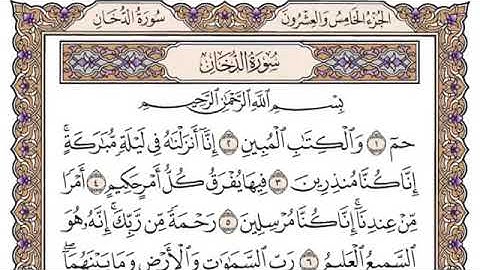 الجزء الخامس والعشرون سورة الدخان
سُورَةُ الدُّخَانِ
بِسْمِ اللَّهِ الرَّحْمَٰنِ الرَّحِيمِ
حمٓ ١ وَالْكِتَابِ الْمُبِينِ ٢ إِنَّآ أَنزَلْنَاهُ فِي لَيْلَةٍ مُّبَارَكَةٍ ۚ
إِنَّا كُنَّا مُنذِرِينَ ٣ فِيهَا يُفْرَقُ كُلُّ أَمْرٍ حَكِيمٍ ٤ أَمْرًا
مِّنْ عِندِنَآ ۚ إِنَّا كُنَّا مُرْسِلِينَ ٥ رَحْمَةً مِّن رَّبِّكَ ۚ إِنَّهُ هُوَ
السَّمِيعُ الْعَلِيمُ ٦ رَبِّ السَّمَاوَاتِ وَالْأَرْضِ وَمَا بَيْنَهُمَآ ۖ